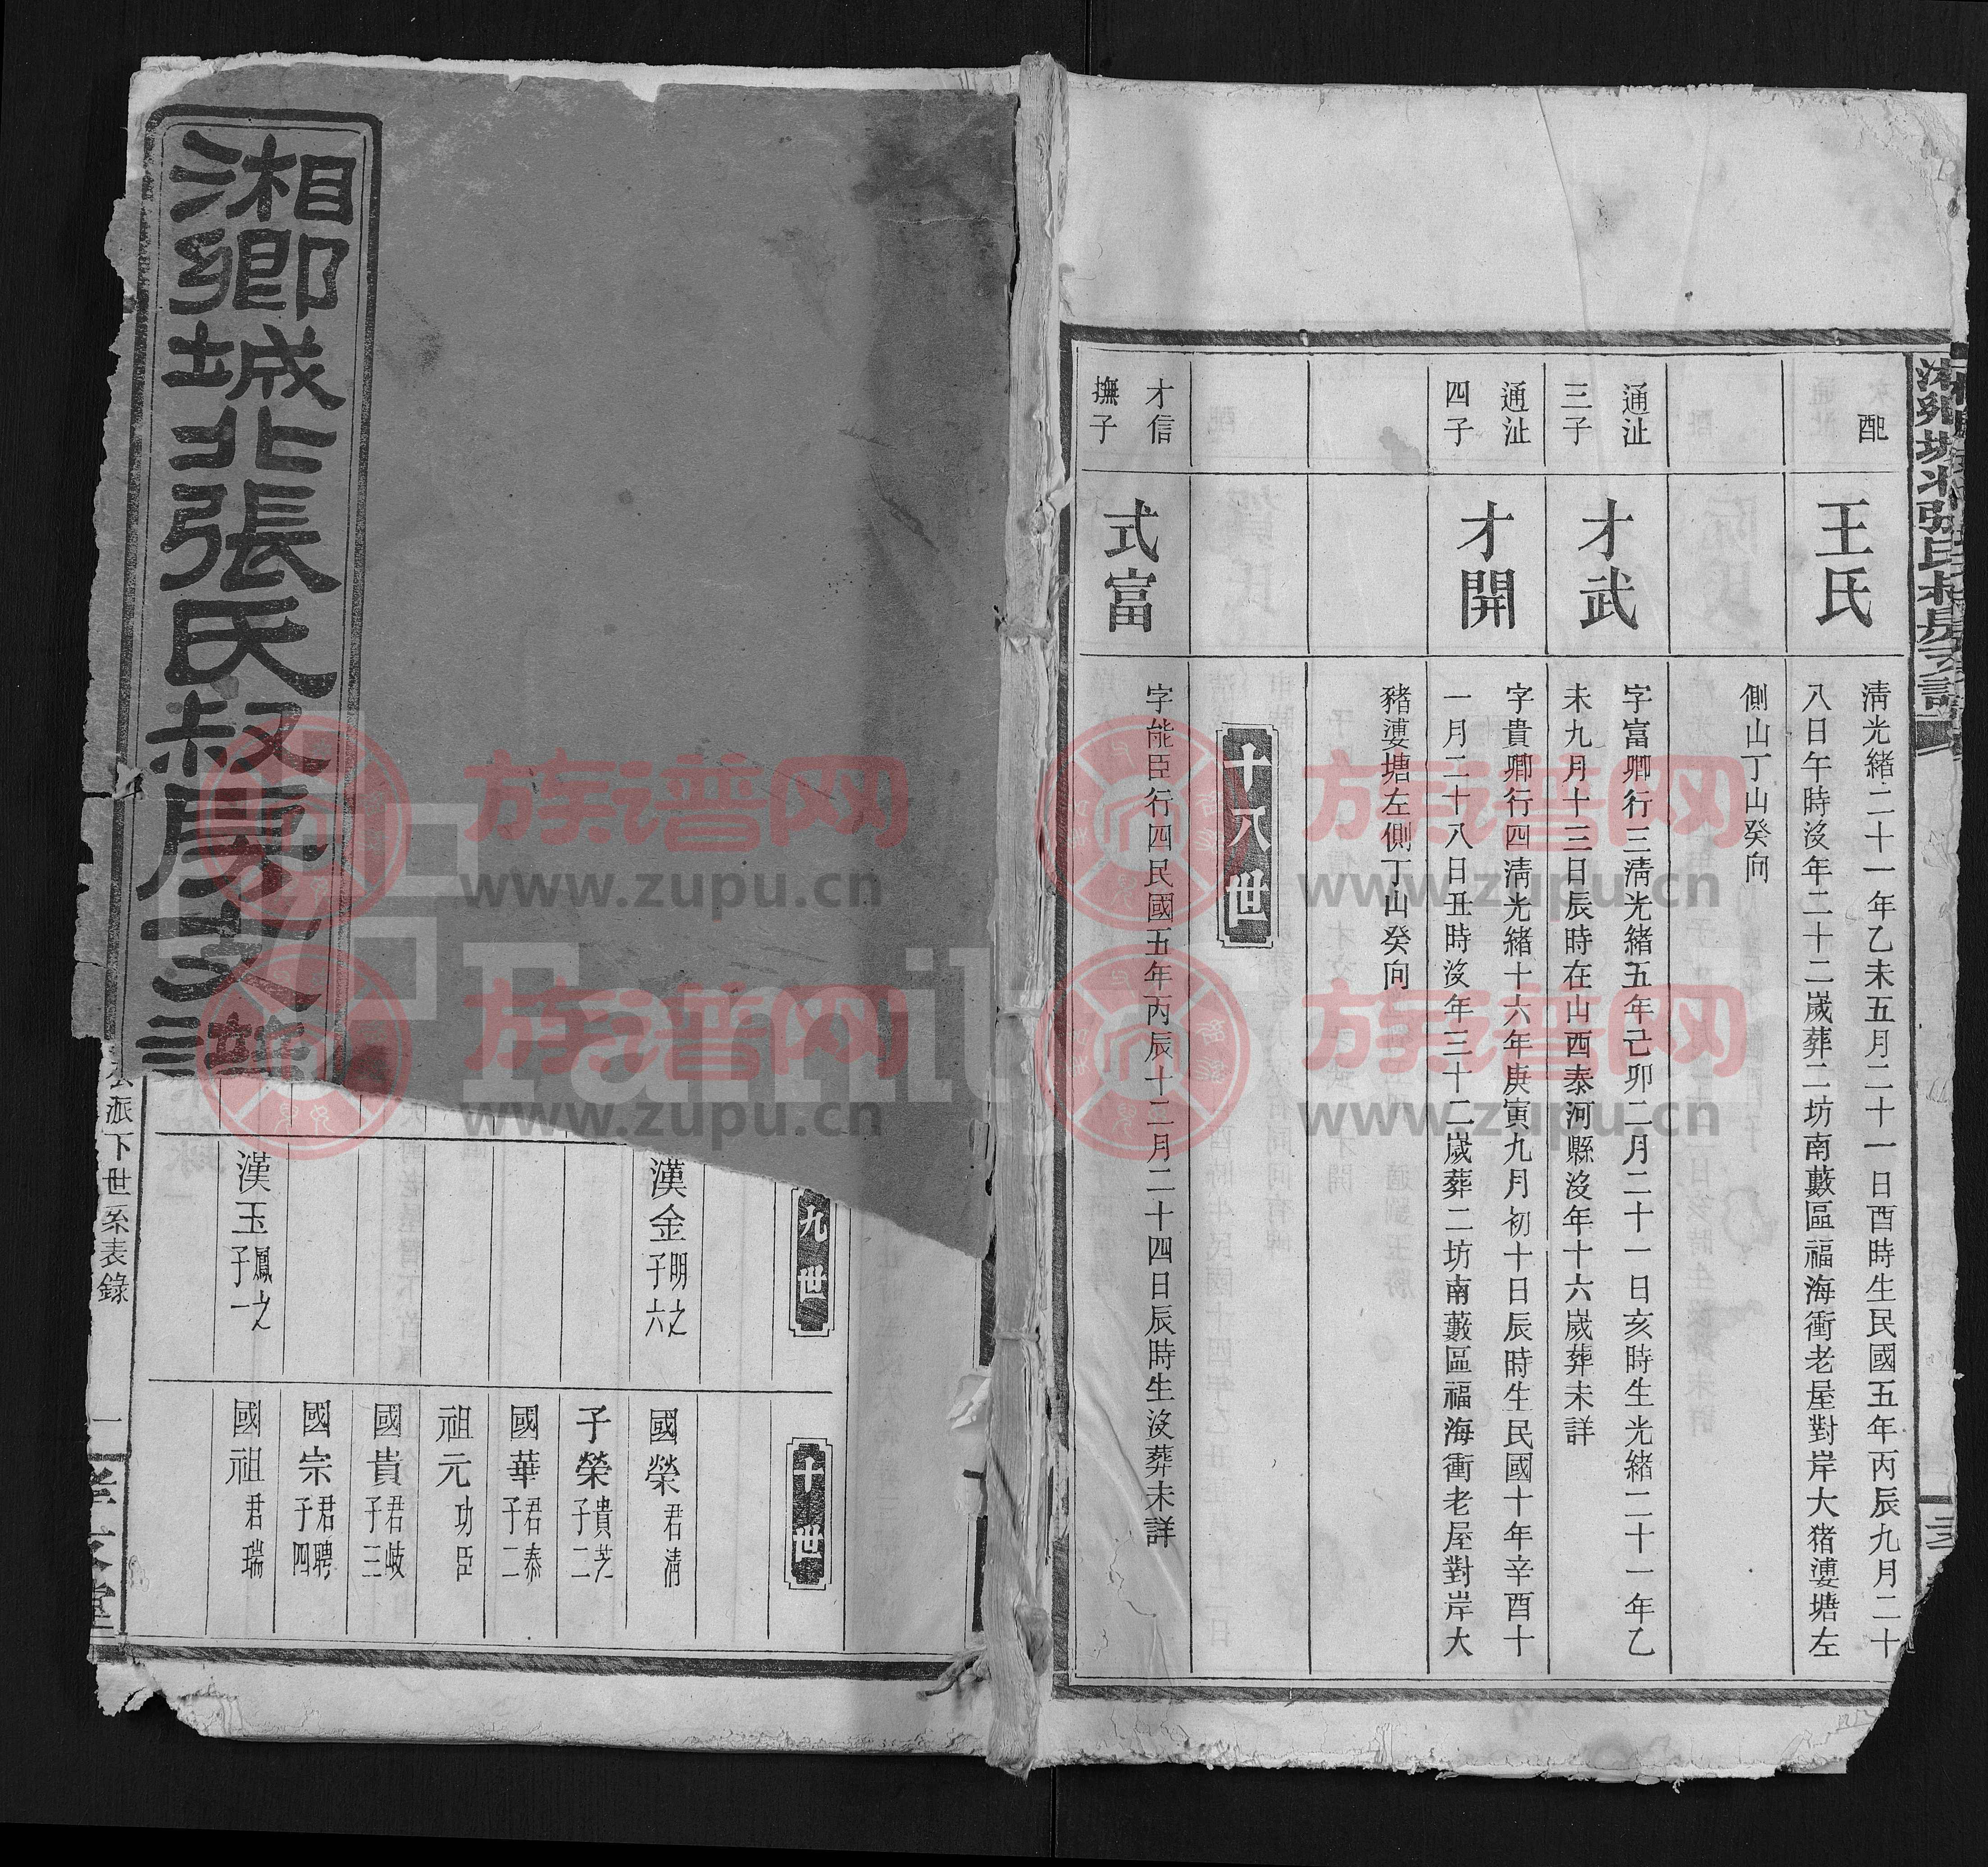 湘鄉城北張氏叔房支譜
配
王氏
清光緒二十一年乙未五月二十一日酉時生民國五年丙辰九月二十
八日午時沒年二十二嵗葬二坊南藪區福海衝老屋對岸大猪溇塘左
側山丁山癸向
通沚
三子
才武
字富卿行三清光緒五年己卯二月二十一日亥時生光緒二十一年乙
未九月十三日辰時在山西泰河縣沒年十六嵗葬未詳
通沚
四子
才開
字貴卿行四清光緒十六年庚寅九月初十日辰時生民國十年辛酉十
一月二十八日丑時沒年三十二嵗葬二坊南藪區福海衝老屋對岸大
豬溇塘左側丁山癸向
十八世
才信
撫子
式富
字能臣行四民國五年丙辰十二月二十四日辰時生沒葬未詳
九世
漢金 明之 子六
漢玉 鳳之 子一
十世
國榮 君清
子榮 貴芝 子二
國華 君泰 子二
祖元 功臣
國貴 君岐 子三
國宗 君聘 子四
國祖 君瑞
派下世系表錄
一
族谱网
www.zupu.cn
族谱网
www.zupu.cn
族谱网
www.zupu.cn
族谱网
www.zupu.cn